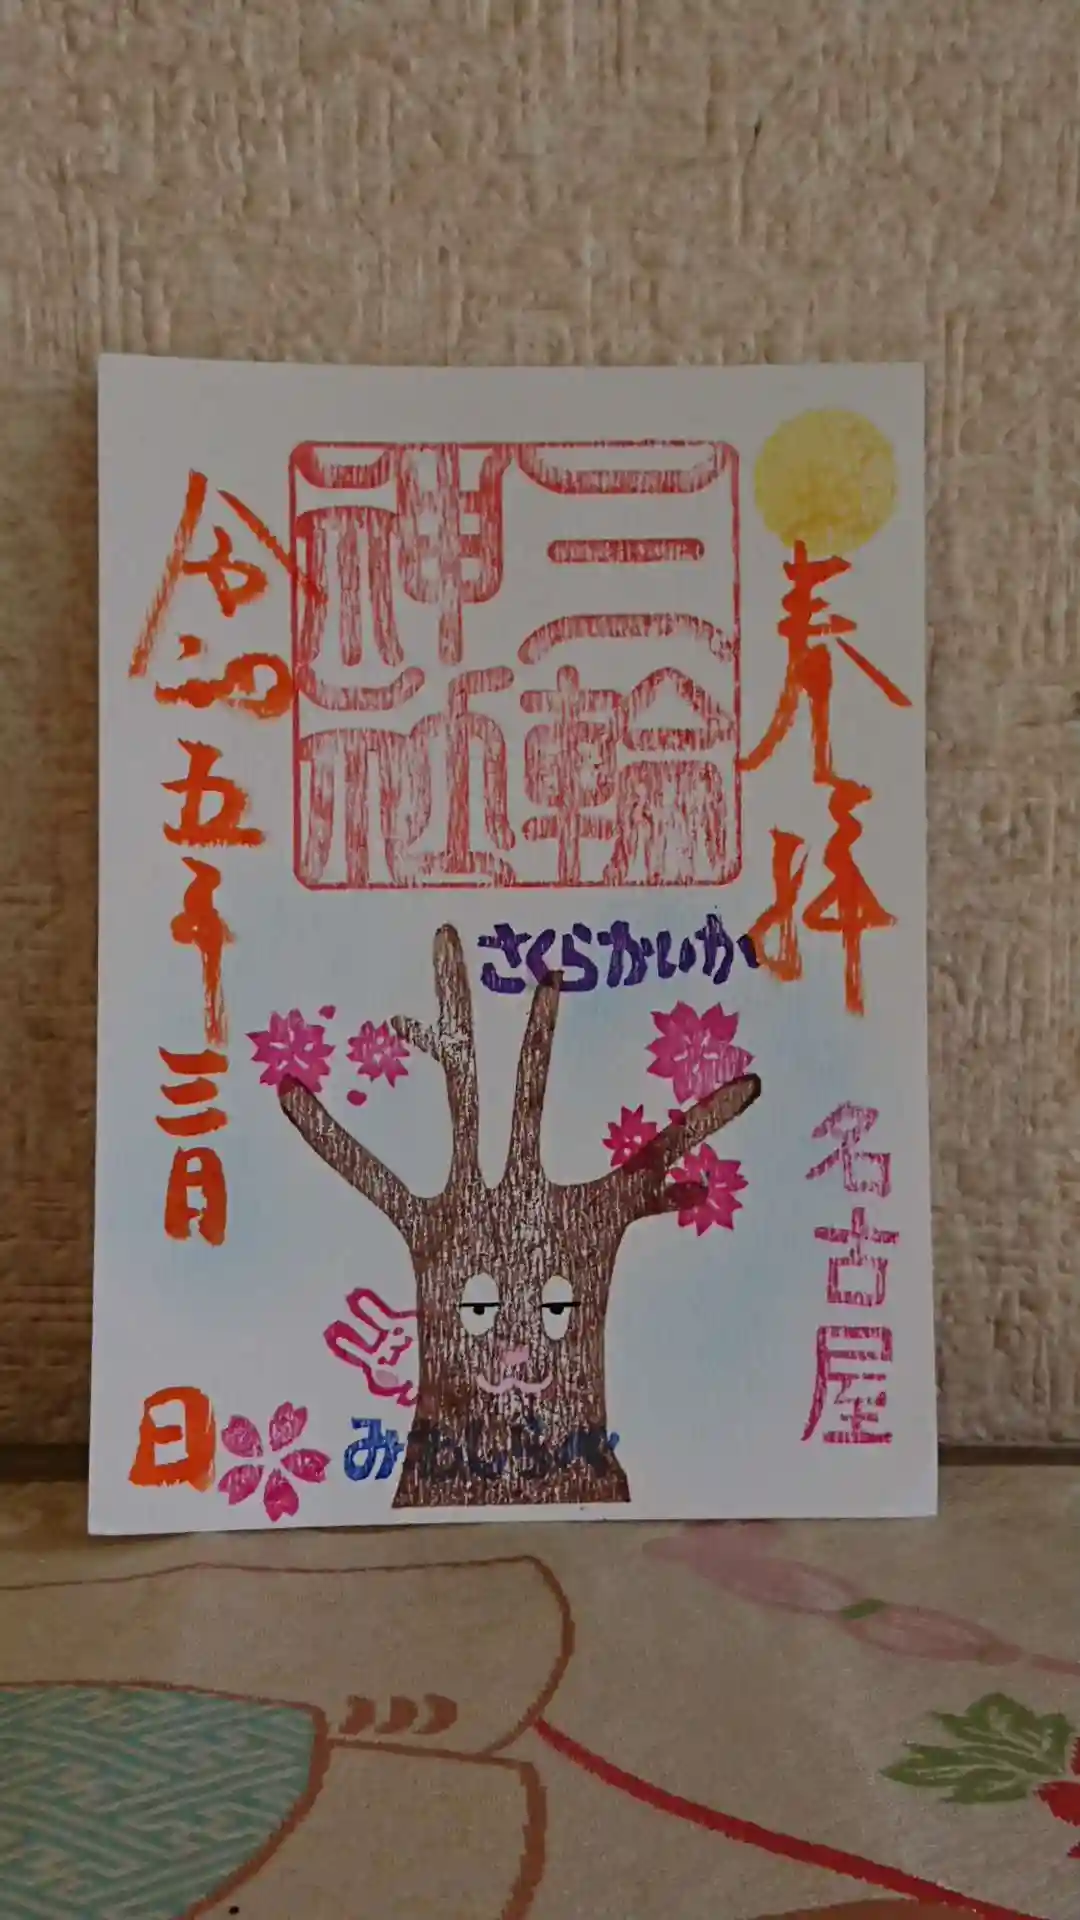 奉拝
名古屋
三輪
神社
さくらかいか
令和五年三月
日